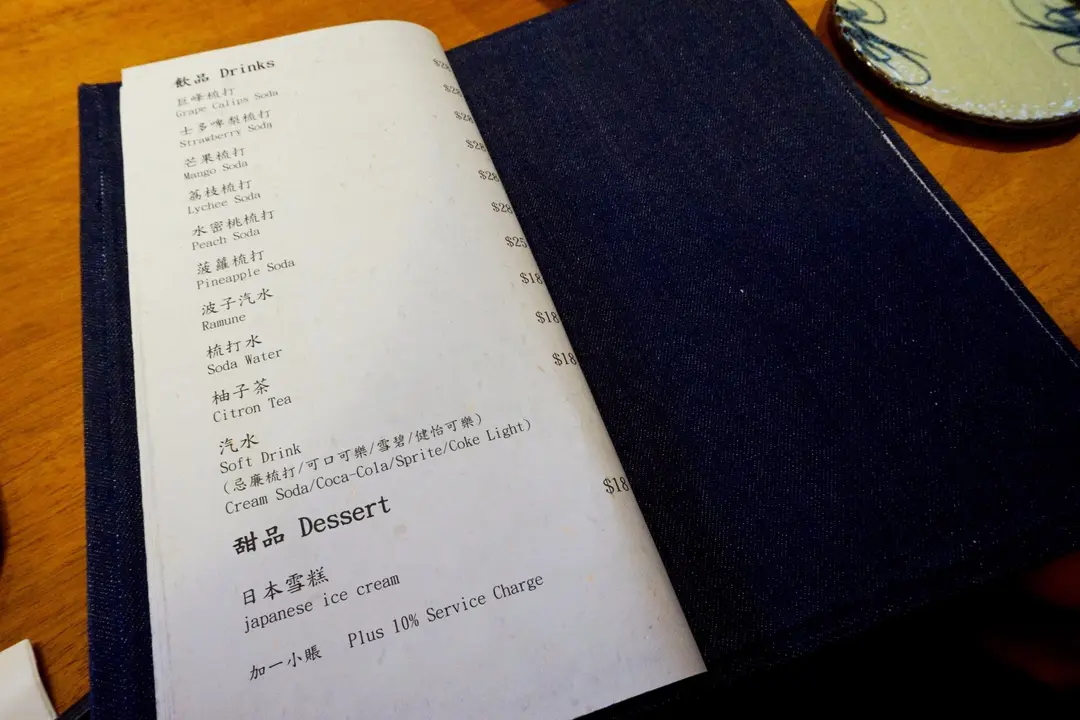 飲品 Drinks
巨峰梳打 $28
Grape Calips Soda
士多啤梨梳打 $28
Strawberry Soda
芒果梳打 $28
Mango Soda
荔枝梳打 $28
Lychee Soda
水密桃梳打 $28
Peach Soda
菠蘿梳打 $28
Pineapple Soda
波子汽水 $25
Ramune
梳打水 $18
Soda Water
柚子茶 $18
Citron Tea
汽水 $18
Soft Drink
(忌廉梳打/可口可樂/雪碧/健怡可樂)
Cream Soda/Coca-Cola/Sprite/Coke Light)
甜品 Dessert
日本雪糕 $18
japanese ice cream
加一小賬 Plus 10% Service Charge